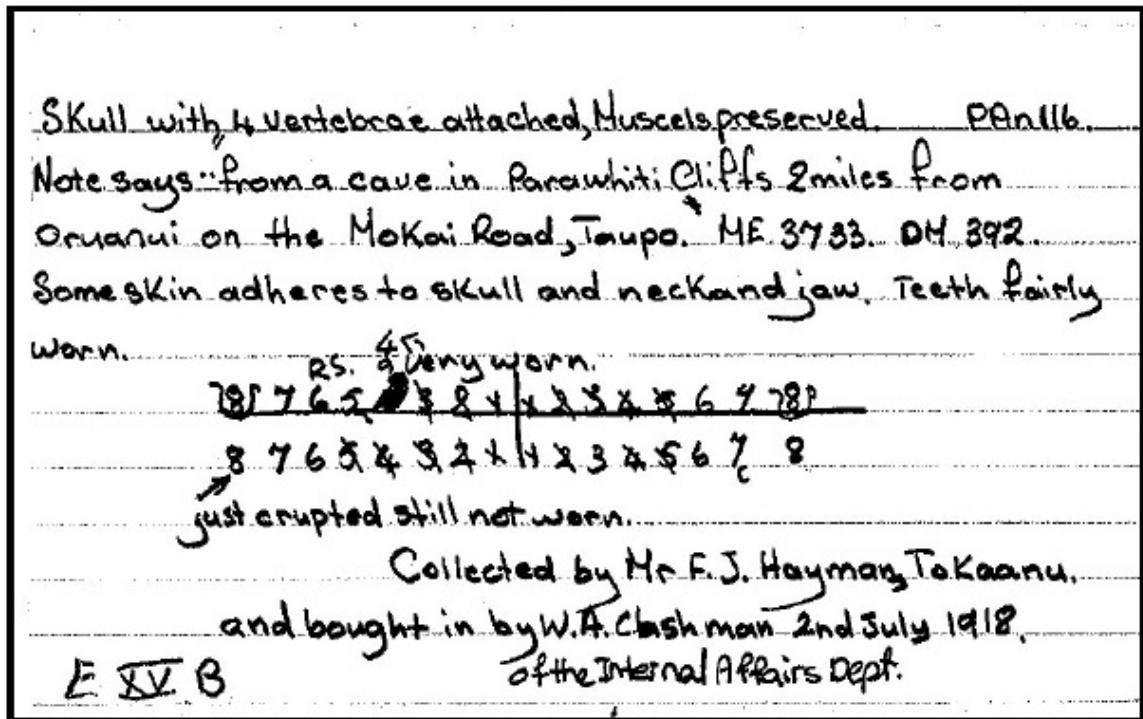 Skull with 4 vertebrae attached, Muscels preserved. PAn116.
Note says "from a cave in Parawhiti Cliffs 2 miles from
Oruanui on the Mokai Road, Taupo. ME 3733. DM 392.
Some skin adheres to skull and neck and jaw. Teeth fairly
worn.
RS. very worn.
8 7 6 5 3 2 1 1 2 3 4 5 6 7 8
8 7 6 5 4 3 2 1 1 2 3 4 5 6 7 8
c
just erupted still not worn.
Collected by Mr F.J. Hayman, Tokaanu.
and bought in by W.A. Clashman 2nd July 1918.
of the Internal Affairs Dept.
E XV B